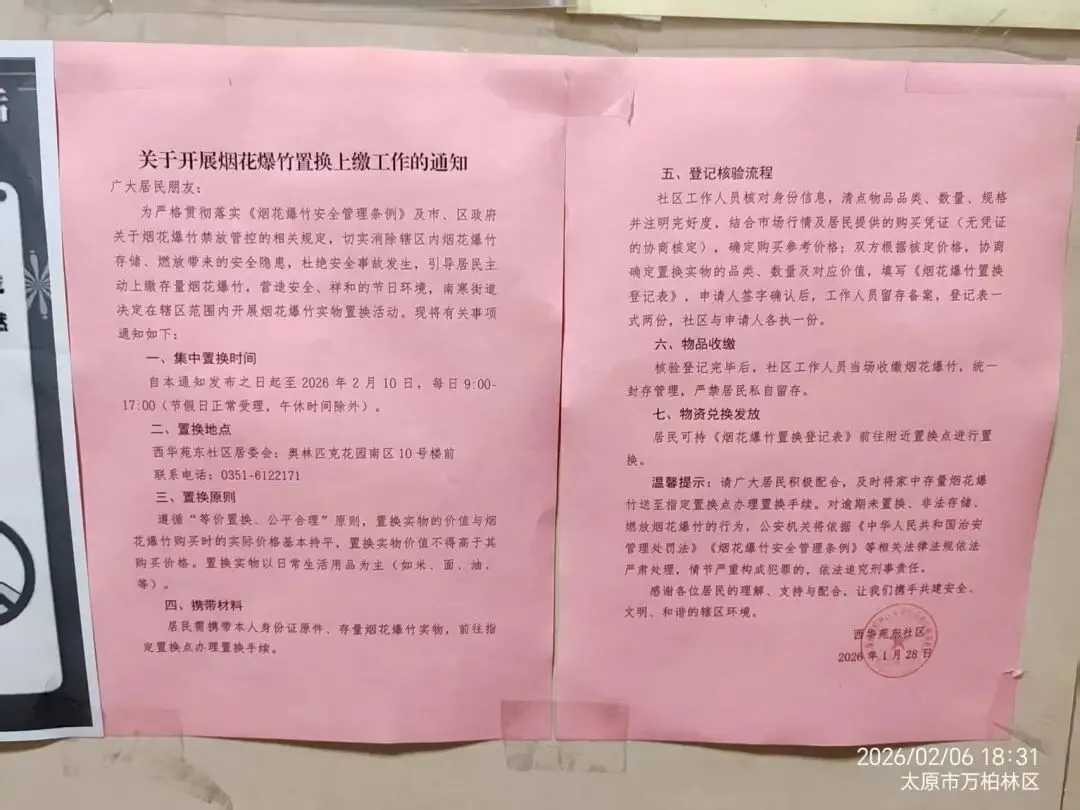 关于开展烟花爆竹置换上缴工作的通知
广大居民朋友：
为严格贯彻落实《烟花爆竹安全管理条例》及市、区政府
关于烟花爆竹禁放管控的相关规定，切实消除辖区内烟花爆竹
存储、燃放带来的安全隐患，杜绝安全事故发生，引导居民主
动上缴存量烟花爆竹，营造安全、祥和的节日环境，南寒街道
决定在辖区范围内开展烟花爆竹实物置换活动。现将有关事项
通知如下：
一、集中置换时间
自本通知发布之日起至 2026 年 2 月 10 日，每日 9:00-
17:00（节假日正常受理，午休时间除外）。
二、置换地点
西华苑东社区居委会：奥林匹克花园南区 10 号楼前
联系电话：0351-6122171
三、置换原则
遵循“等价置换、公平合理”原则，置换实物的价值与烟
花爆竹购买时的实际价格基本持平，置换实物价值不得高于其
购买价格。置换实物以日常生活用品为主（如米、面、油，
等）。
四、携带材料
居民需携带本人身份证原件、存量烟花爆竹实物，前往指
定置换点办理置换手续。
五、登记核验流程
社区工作人员核对身份信息，清点物品品类、数量、规格
并注明完好度，结合市场行情及居民提供的购买凭证（无凭证
的协商核定），确定购买参考价格；双方根据核定价格，协商
确定置换实物的品类、数量及对应价值，填写《烟花爆竹置换
登记表》，申请人签字确认后，工作人员留存备案，登记表一
式两份，社区与申请人各执一份。
六、物品收缴
核验登记完毕后，社区工作人员当场收缴烟花爆竹，统一
封存管理，严禁居民私自留存。
七、物资兑换发放
居民可持《烟花爆竹置换登记表》前往附近置换点进行置
换。
温馨提示：请广大居民积极配合，及时将家中存量烟花爆
竹送至指定置换点办理置换手续。对逾期未置换、非法存储、
燃放烟花爆竹的行为，公安机关将依据《中华人民共和国治安
管理处罚法》《烟花爆竹安全管理条例》等相关法律法规依法
严肃处理，情节严重构成犯罪的，依法追究刑事责任。
感谢各位居民的理解、支持与配合，让我们携手共建安全、
文明、和谐的辖区环境。
西华苑东社区
2026 年 1 月 28 日
2026/02/06 18:31
太原市万柏林区